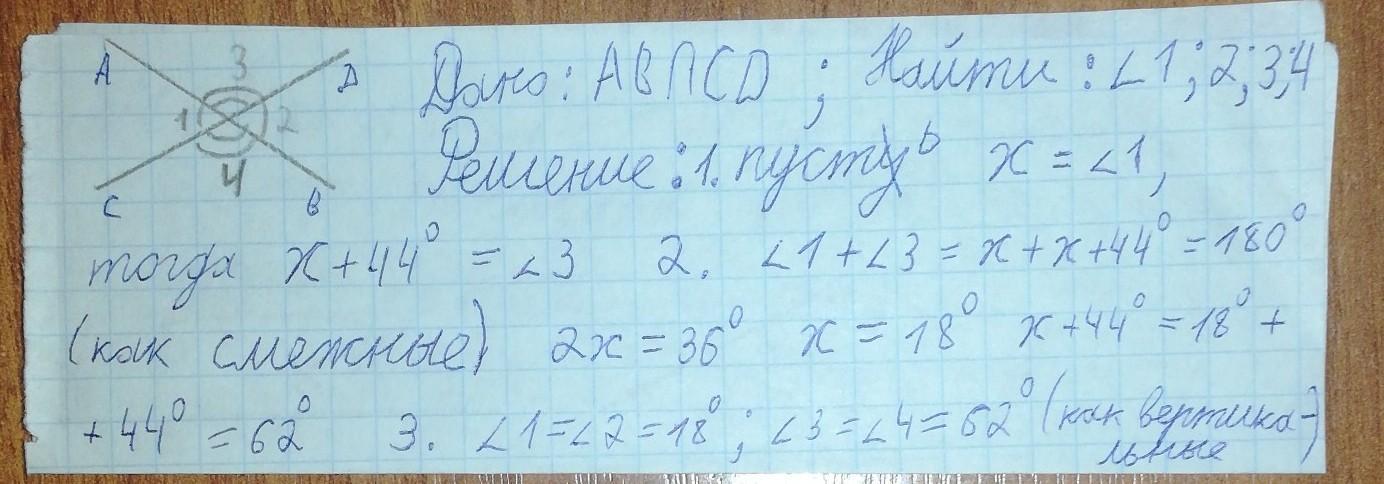 A 3 D
1 2
4
C B
Дано: AB∩CD ; Найти: ∠1;2;3;4
Решение: 1. пусть x = ∠1,
тогда x + 44° = ∠3 2. ∠1 + ∠3 = x + x + 44° = 180°
(как смежные) 2x = 36° x = 18° x + 44° = 18° +
+ 44° = 62° 3. ∠1 = ∠2 = 18° ; ∠3 = ∠4 = 62° (как вертика-
льные)